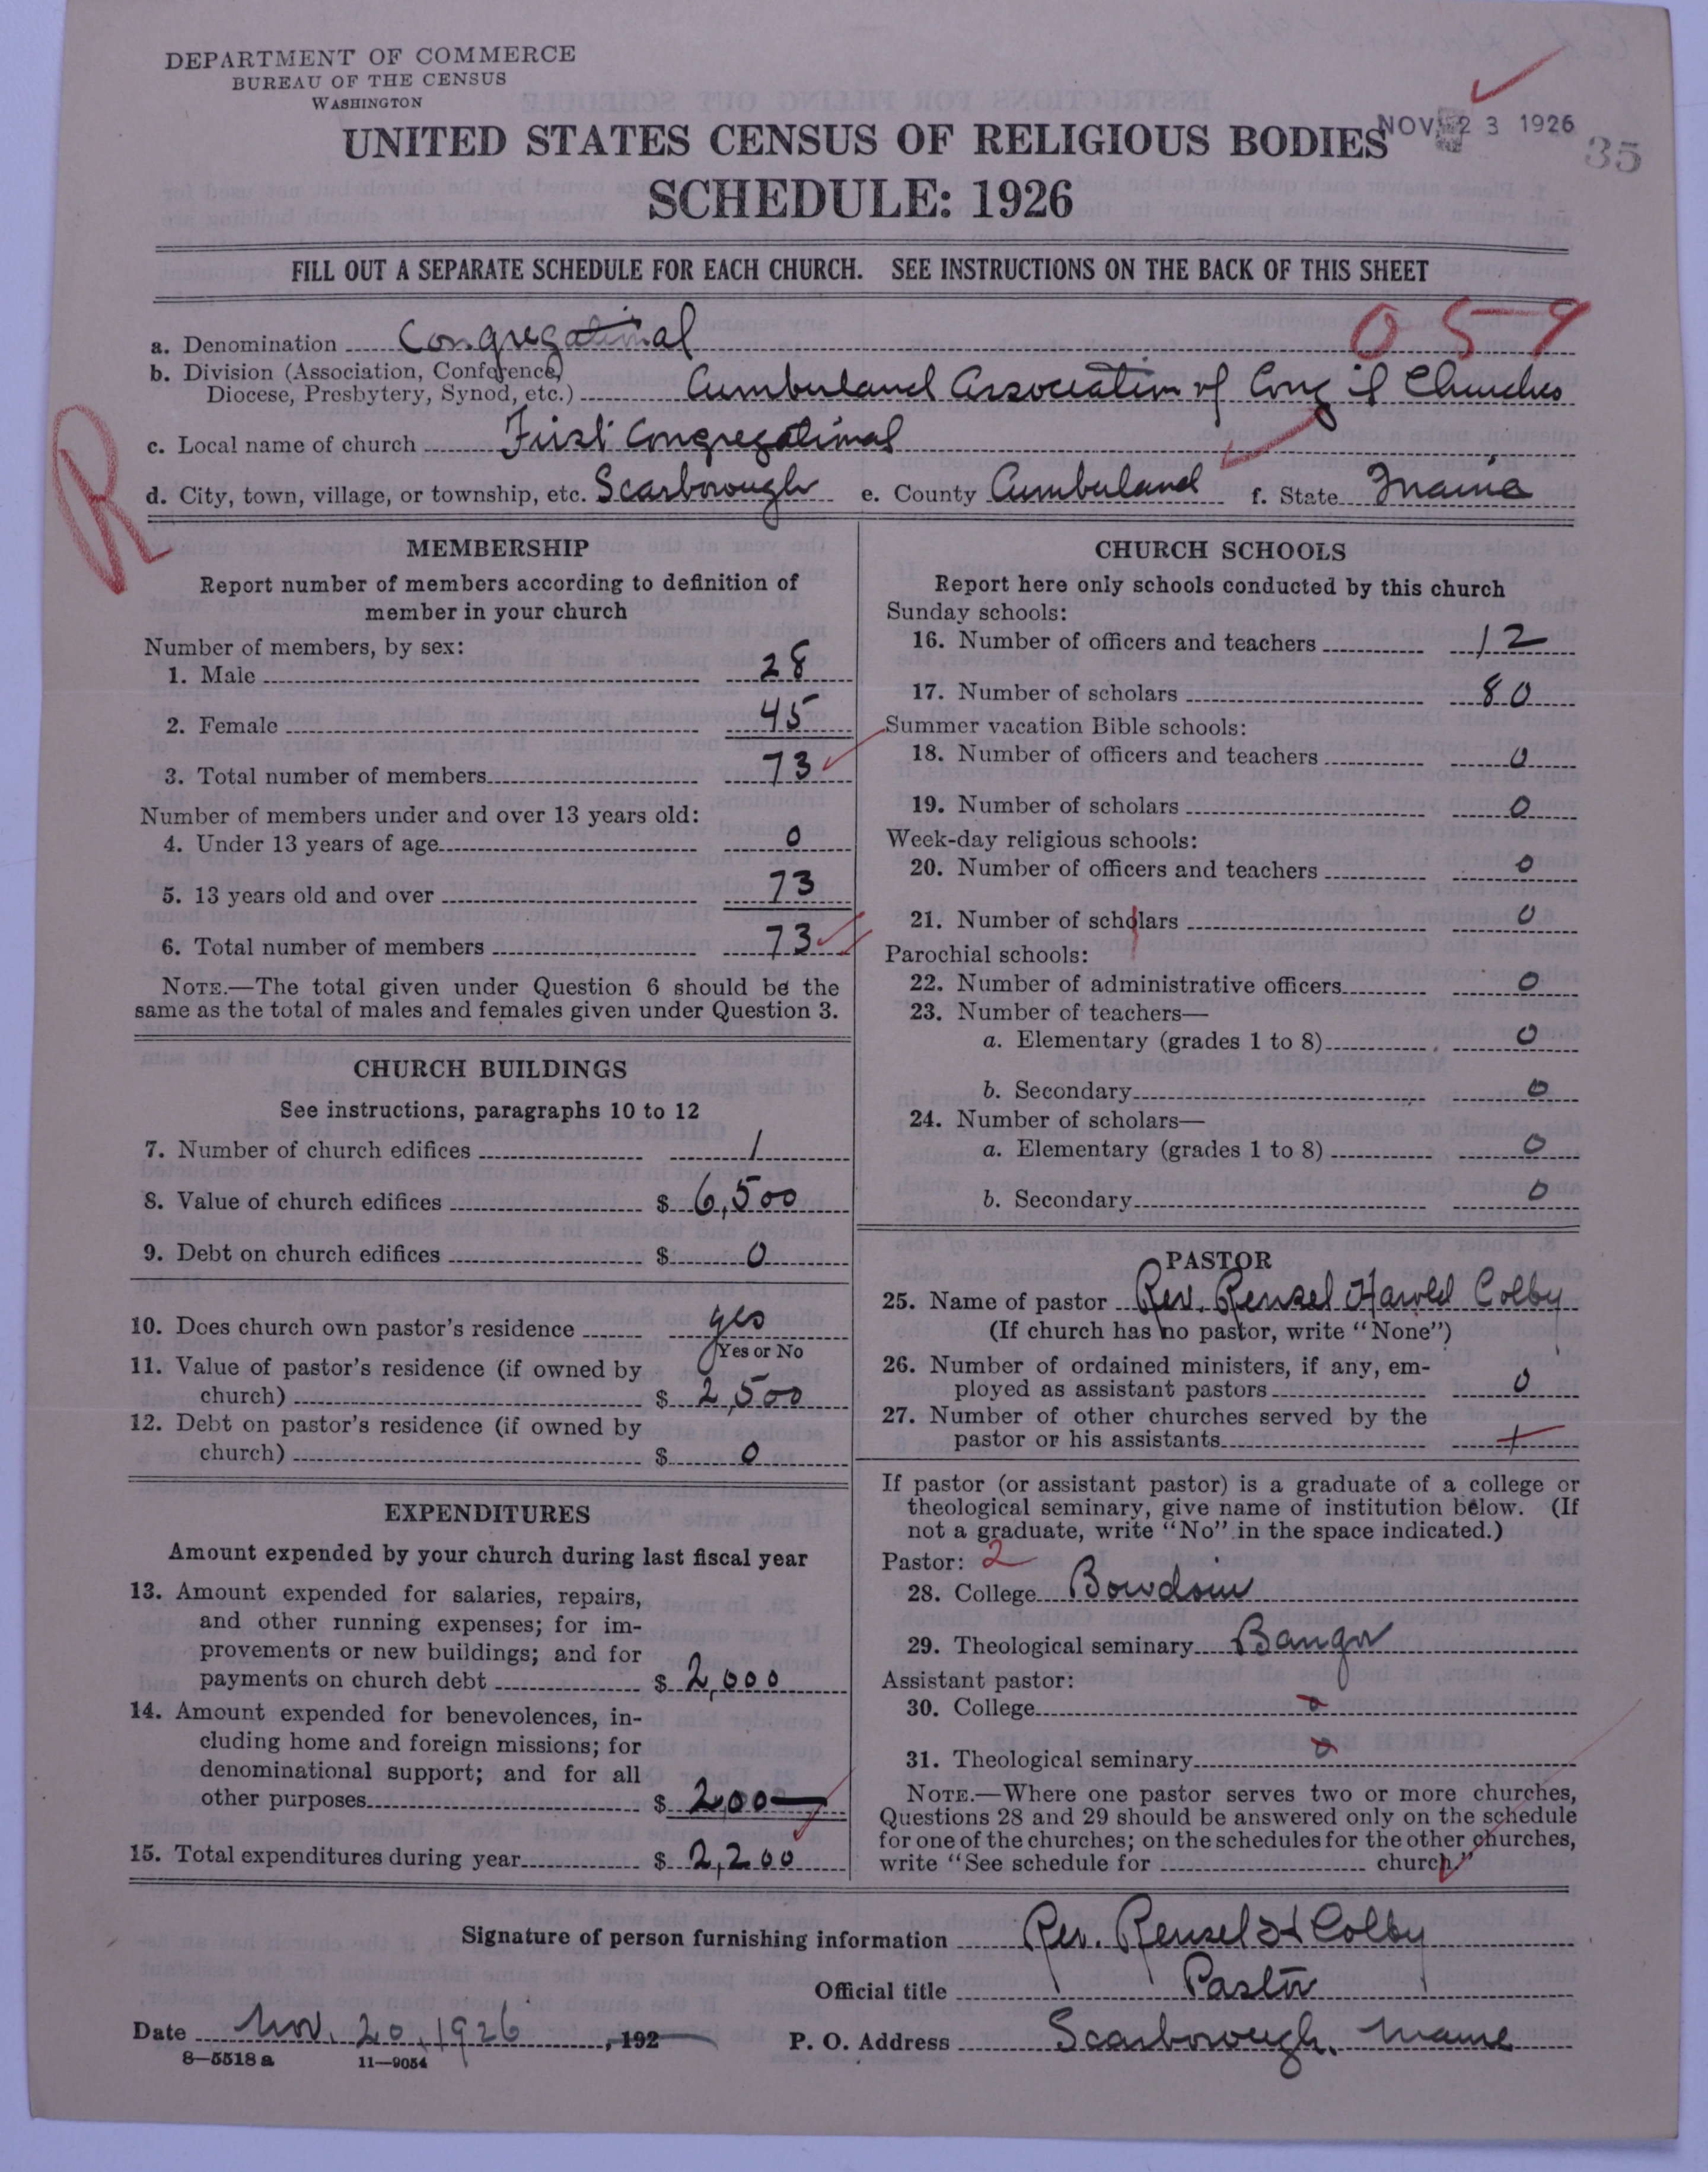 DEPARTMENT OF COMMERCE
BUREAU OF THE CENSUS
WASHINGTON
NOV 23 1926
35
UNITED STATES CENSUS OF RELIGIOUS BODIES
SCHEDULE: 1926
FILL OUT A SEPARATE SCHEDULE FOR EACH CHURCH. SEE INSTRUCTIONS ON THE BACK OF THIS SHEET
059
a. Denomination Congregational
b. Division (Association, Conference, Diocese, Presbytery, Synod, etc.) Cumberland Association of Cong'l Churches
c. Local name of church First Congregational
d. City, town, village, or township, etc. Scarborough e. County Cumberland f. State Maine
R
MEMBERSHIP
Report number of members according to definition of
member in your church
Number of members, by sex:
1. Male 28
2. Female 45
3. Total number of members 73
Number of members under and over 13 years old:
4. Under 13 years of age 0
5. 13 years old and over 73
6. Total number of members 73
NOTE.—The total given under Question 6 should be the
same as the total of males and females given under Question 3.
CHURCH BUILDINGS
See instructions, paragraphs 10 to 12
7. Number of church edifices 1
8. Value of church edifices $ 6,500
9. Debt on church edifices $ 0
10. Does church own pastor's residence yes
Yes or No
11. Value of pastor's residence (if owned by
church) $ 2,500
12. Debt on pastor's residence (if owned by
church) $ 0
EXPENDITURES
Amount expended by your church during last fiscal year
13. Amount expended for salaries, repairs,
and other running expenses; for im-
provements or new buildings; and for
payments on church debt $ 2,000
14. Amount expended for benevolences, in-
cluding home and foreign missions; for
denominational support; and for all
other purposes $ 200—
15. Total expenditures during year $ 2,200
CHURCH SCHOOLS
Report here only schools conducted by this church
Sunday schools:
16. Number of officers and teachers 12
17. Number of scholars 80
Summer vacation Bible schools:
18. Number of officers and teachers 0
19. Number of scholars 0
Week-day religious schools:
20. Number of officers and teachers 0
21. Number of scholars 0
Parochial schools:
22. Number of administrative officers 0
23. Number of teachers—
a. Elementary (grades 1 to 8) 0
b. Secondary 0
24. Number of scholars—
a. Elementary (grades 1 to 8) 0
b. Secondary 0
PASTOR
25. Name of pastor Rev. Rensel Harold Colby
(If church has no pastor, write "None")
26. Number of ordained ministers, if any, em-
ployed as assistant pastors 0
27. Number of other churches served by the
pastor or his assistants
If pastor (or assistant pastor) is a graduate of a college or
theological seminary, give name of institution below. (If
not a graduate, write "No" in the space indicated.)
Pastor: 2
28. College Bowdoin
29. Theological seminary Bangor
Assistant pastor:
30. College 0
31. Theological seminary 0
NOTE.—Where one pastor serves two or more churches,
Questions 28 and 29 should be answered only on the schedule
for one of the churches; on the schedules for the other churches,
write "See schedule for church."
Signature of person furnishing information Rev. Rensel H Colby
Official title Pastor
Date Nov. 20, 1926, 192 P. O. Address Scarborough, Maine
8—5518 a 11—9054